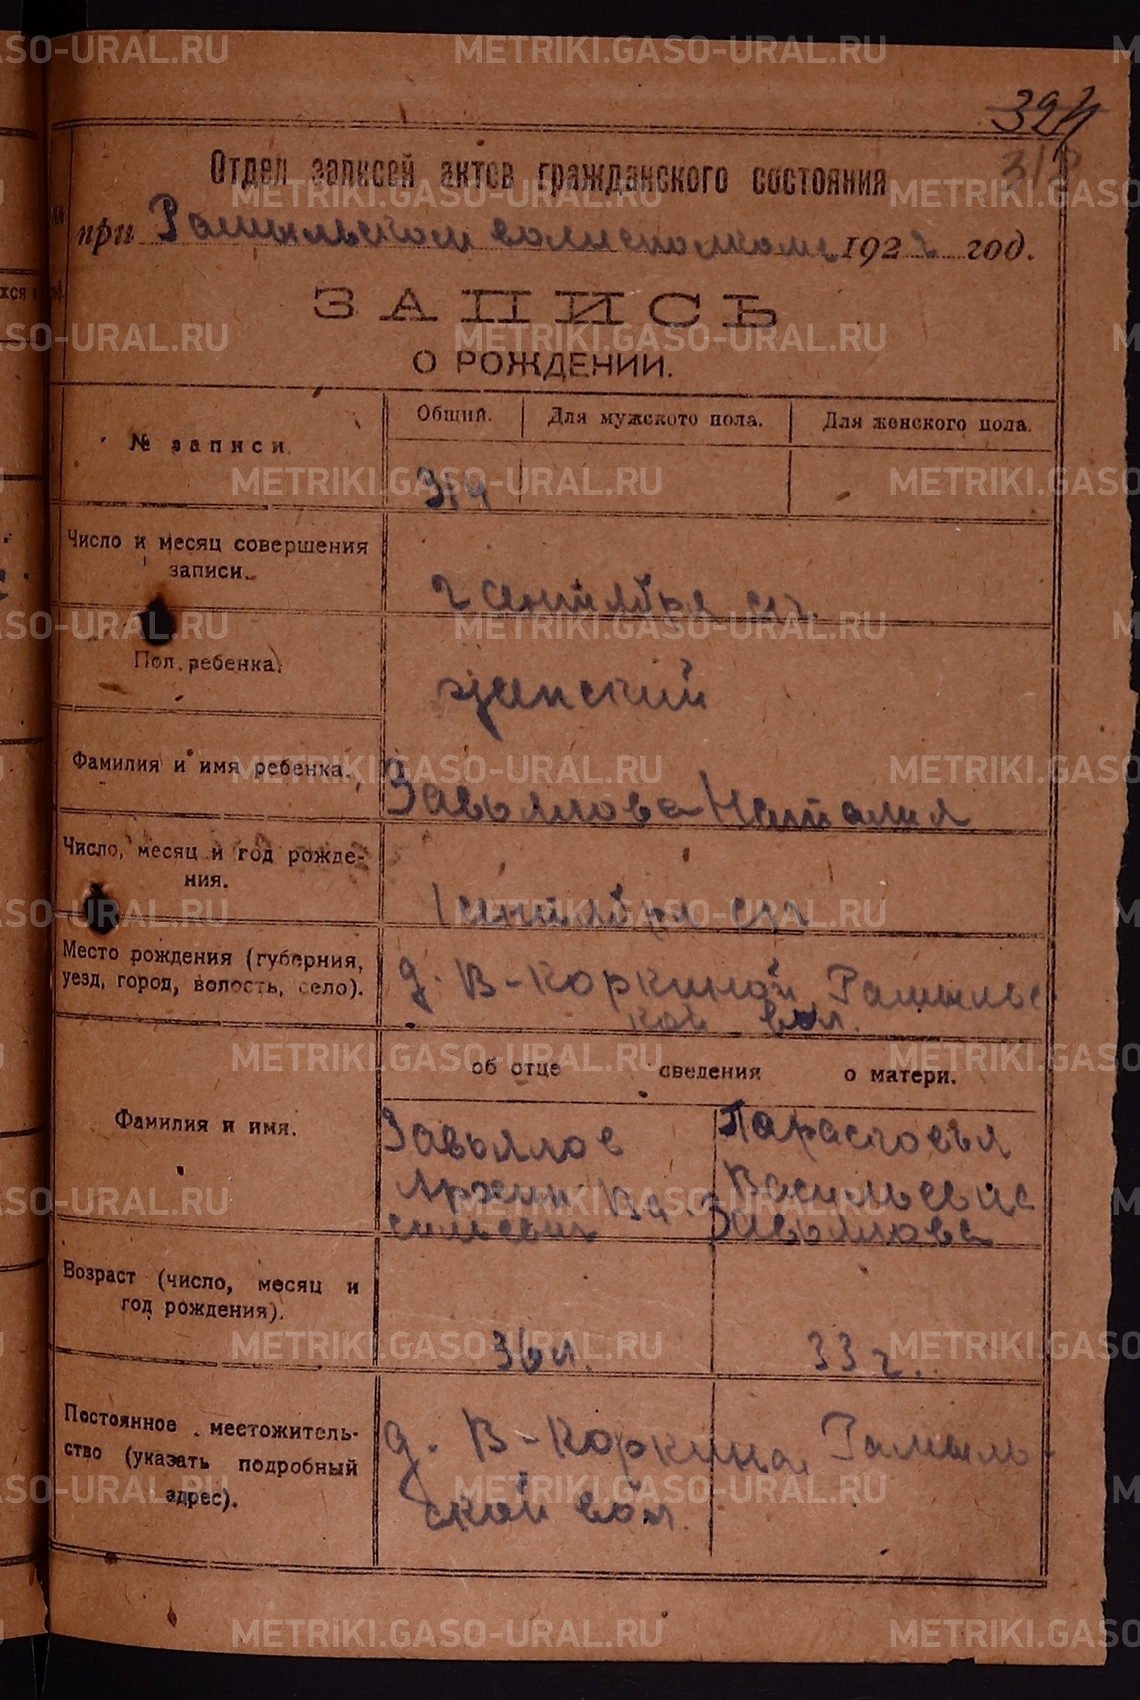 324
318
Отдел записей актов гражданского состояния
при Рамыльском волисполкоме 1922 год.
ЗАПИСЬ
О РОЖДЕНИИ.
№ записи.
Общий. Для мужского пола. Для женского пола.
314
Число и месяц совершения
записи.
2 сентября с/г.
Пол ребенка.
женский
Фамилия и имя ребенка.
Завьялова Наталия
Число, месяц и год рожде-
ния.
1 сентября с/г
Место рождения (губерния,
уезд, город, волость, село).
д. В-Коркиной Рамыльс
кой вол.
об отце сведения о матери.
Фамилия и имя.
Завьялов
Архип Ва
сильевич
Парасковья
Васильевна
Завьялова
Возраст (число, месяц и
год рождения).
36 л.
33 г.
Постоянное местожитель-
ство (указать подробный
адрес).
д. В-Коркина, Рамыль-
ской вол.
METRIKI.GASO-URAL.RU